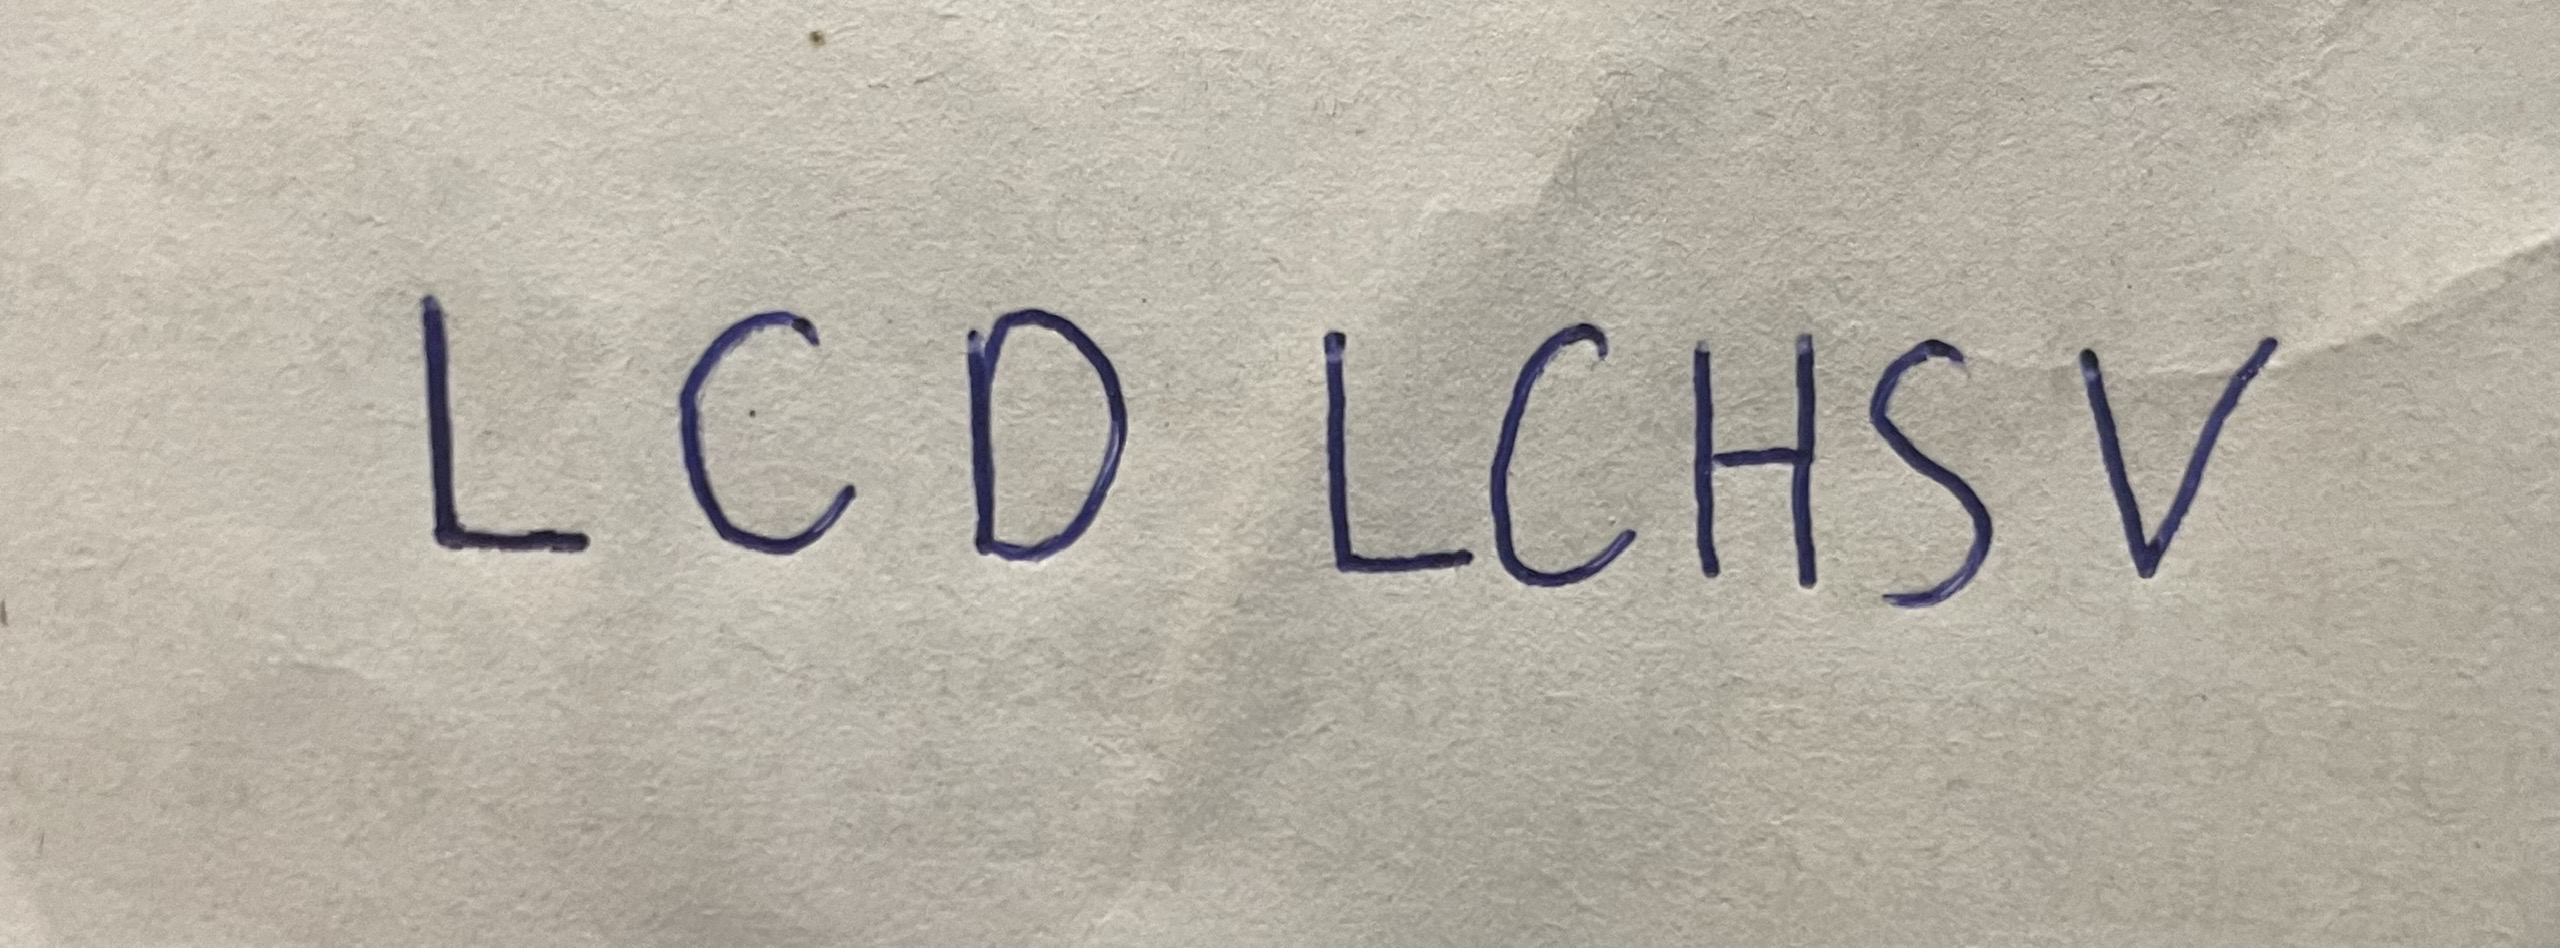 LCD LCHSV